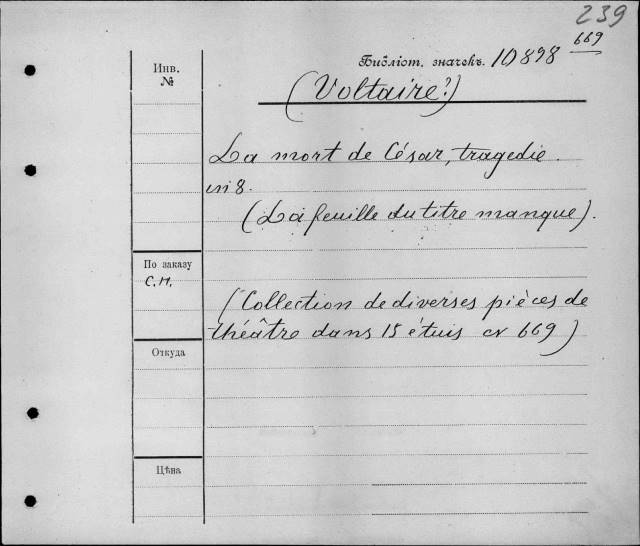 239
Библіот. значекъ. 10898 669
Инв.
№
(Voltaire?)
La mort de César, tragedie.
in 8.
(La feuille du titre manque).
По заказу
С. Н.
(Collection de diverses pièces de
théâtre dans 15 étuis cv 669)
Откуда
Цѣна